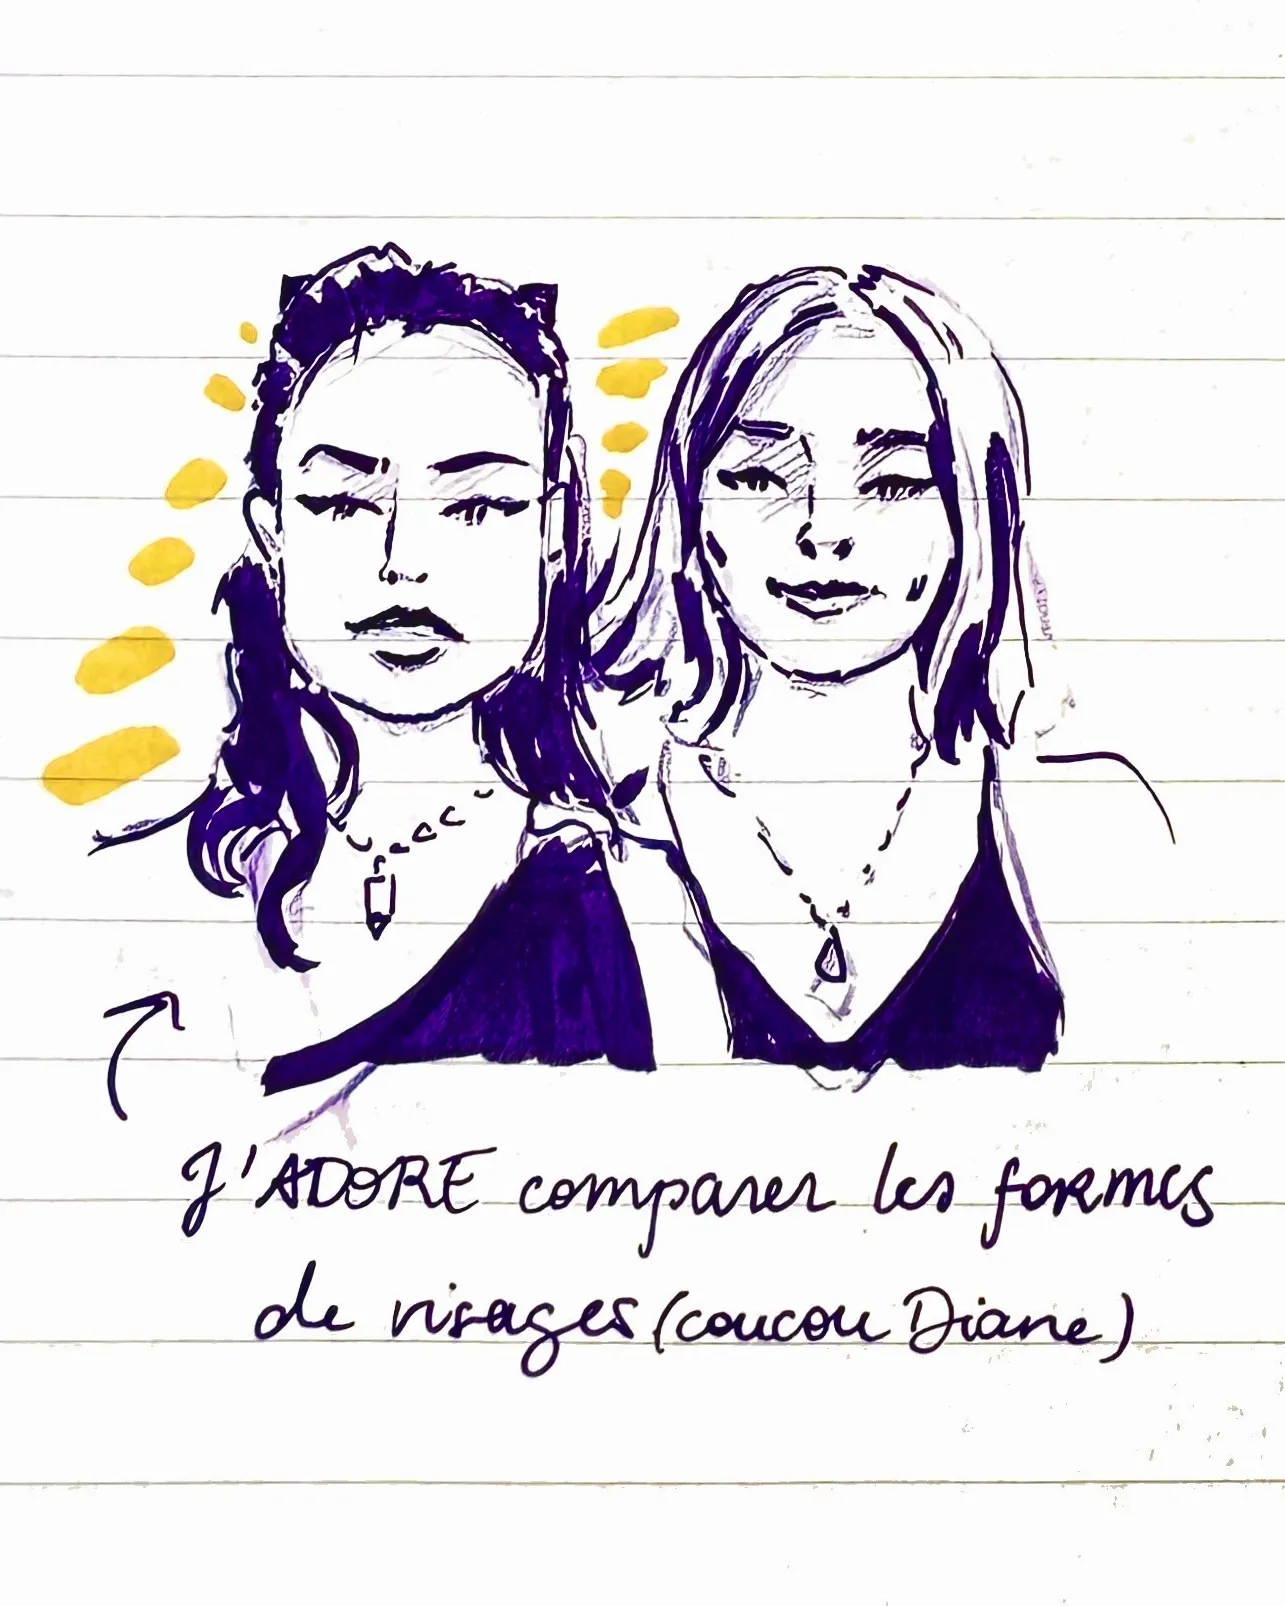 J'ADORE comparer les formes
de visages (coucou Diane)